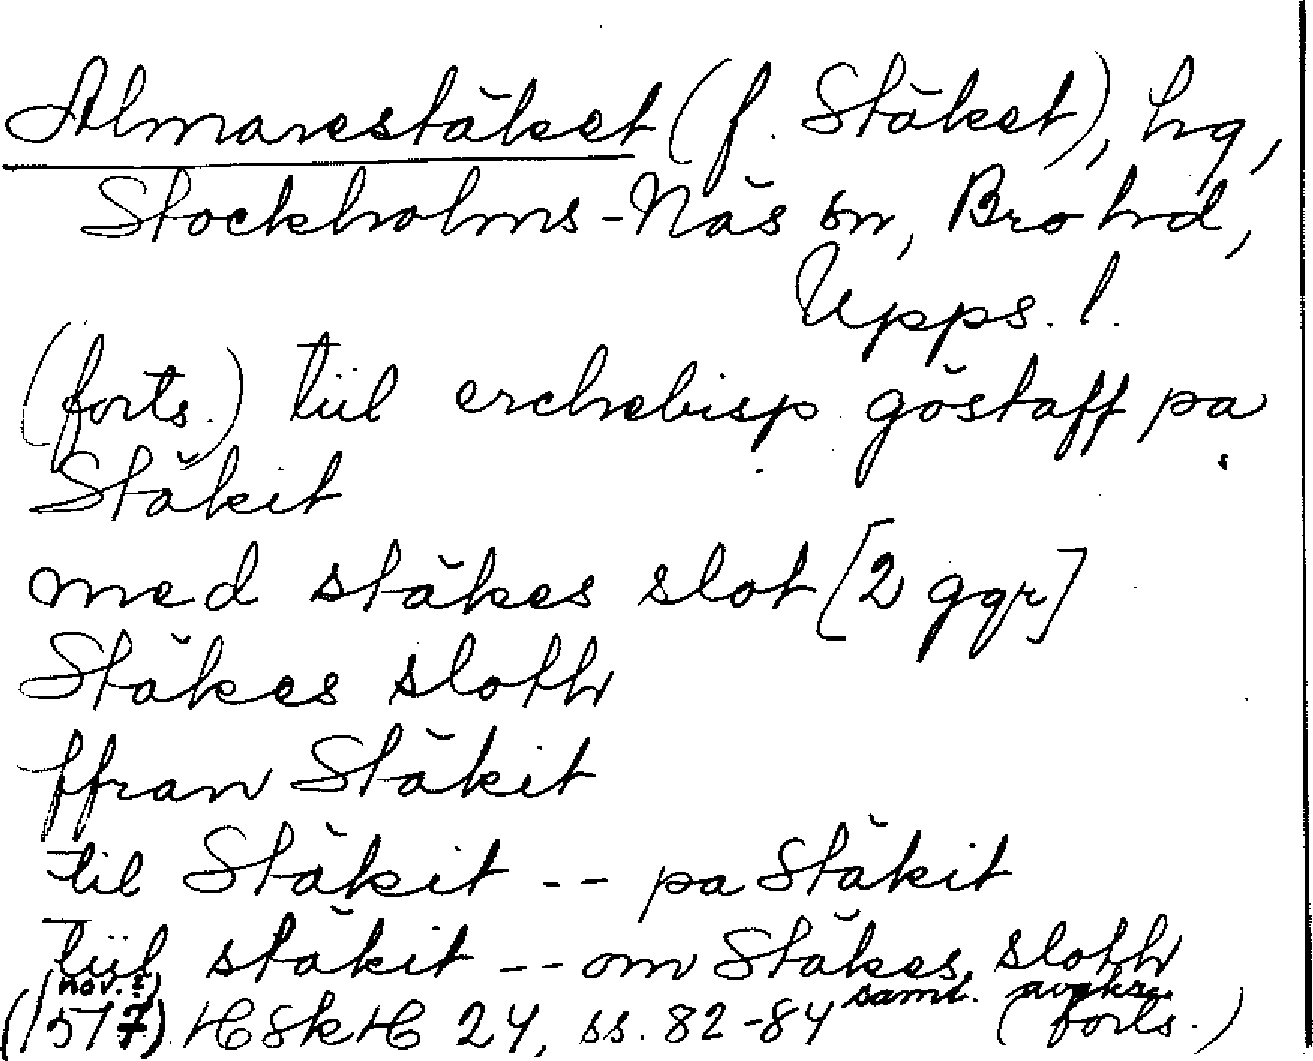 Almarestäket (f. Stäket), hg,
Stockholms-Näs sn, Bro hd,
Upps. l.
(forts.) tiil erchebisp göstaff pa
Stäkit
med stäkes slot [2 ggr]
Stäkes sloth
ffran Stäkit
til Stäkit -- pa Stäkit
tiil stäkit -- om Stäkes sloth
(1517) nov. 2) HSkH 24, ss. 82-84 samt. avskr. (forts.)